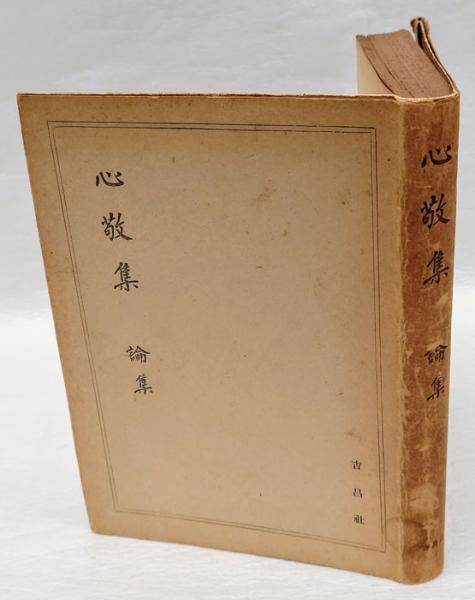 心敬集
論集
吉昌社
心敬集
論集